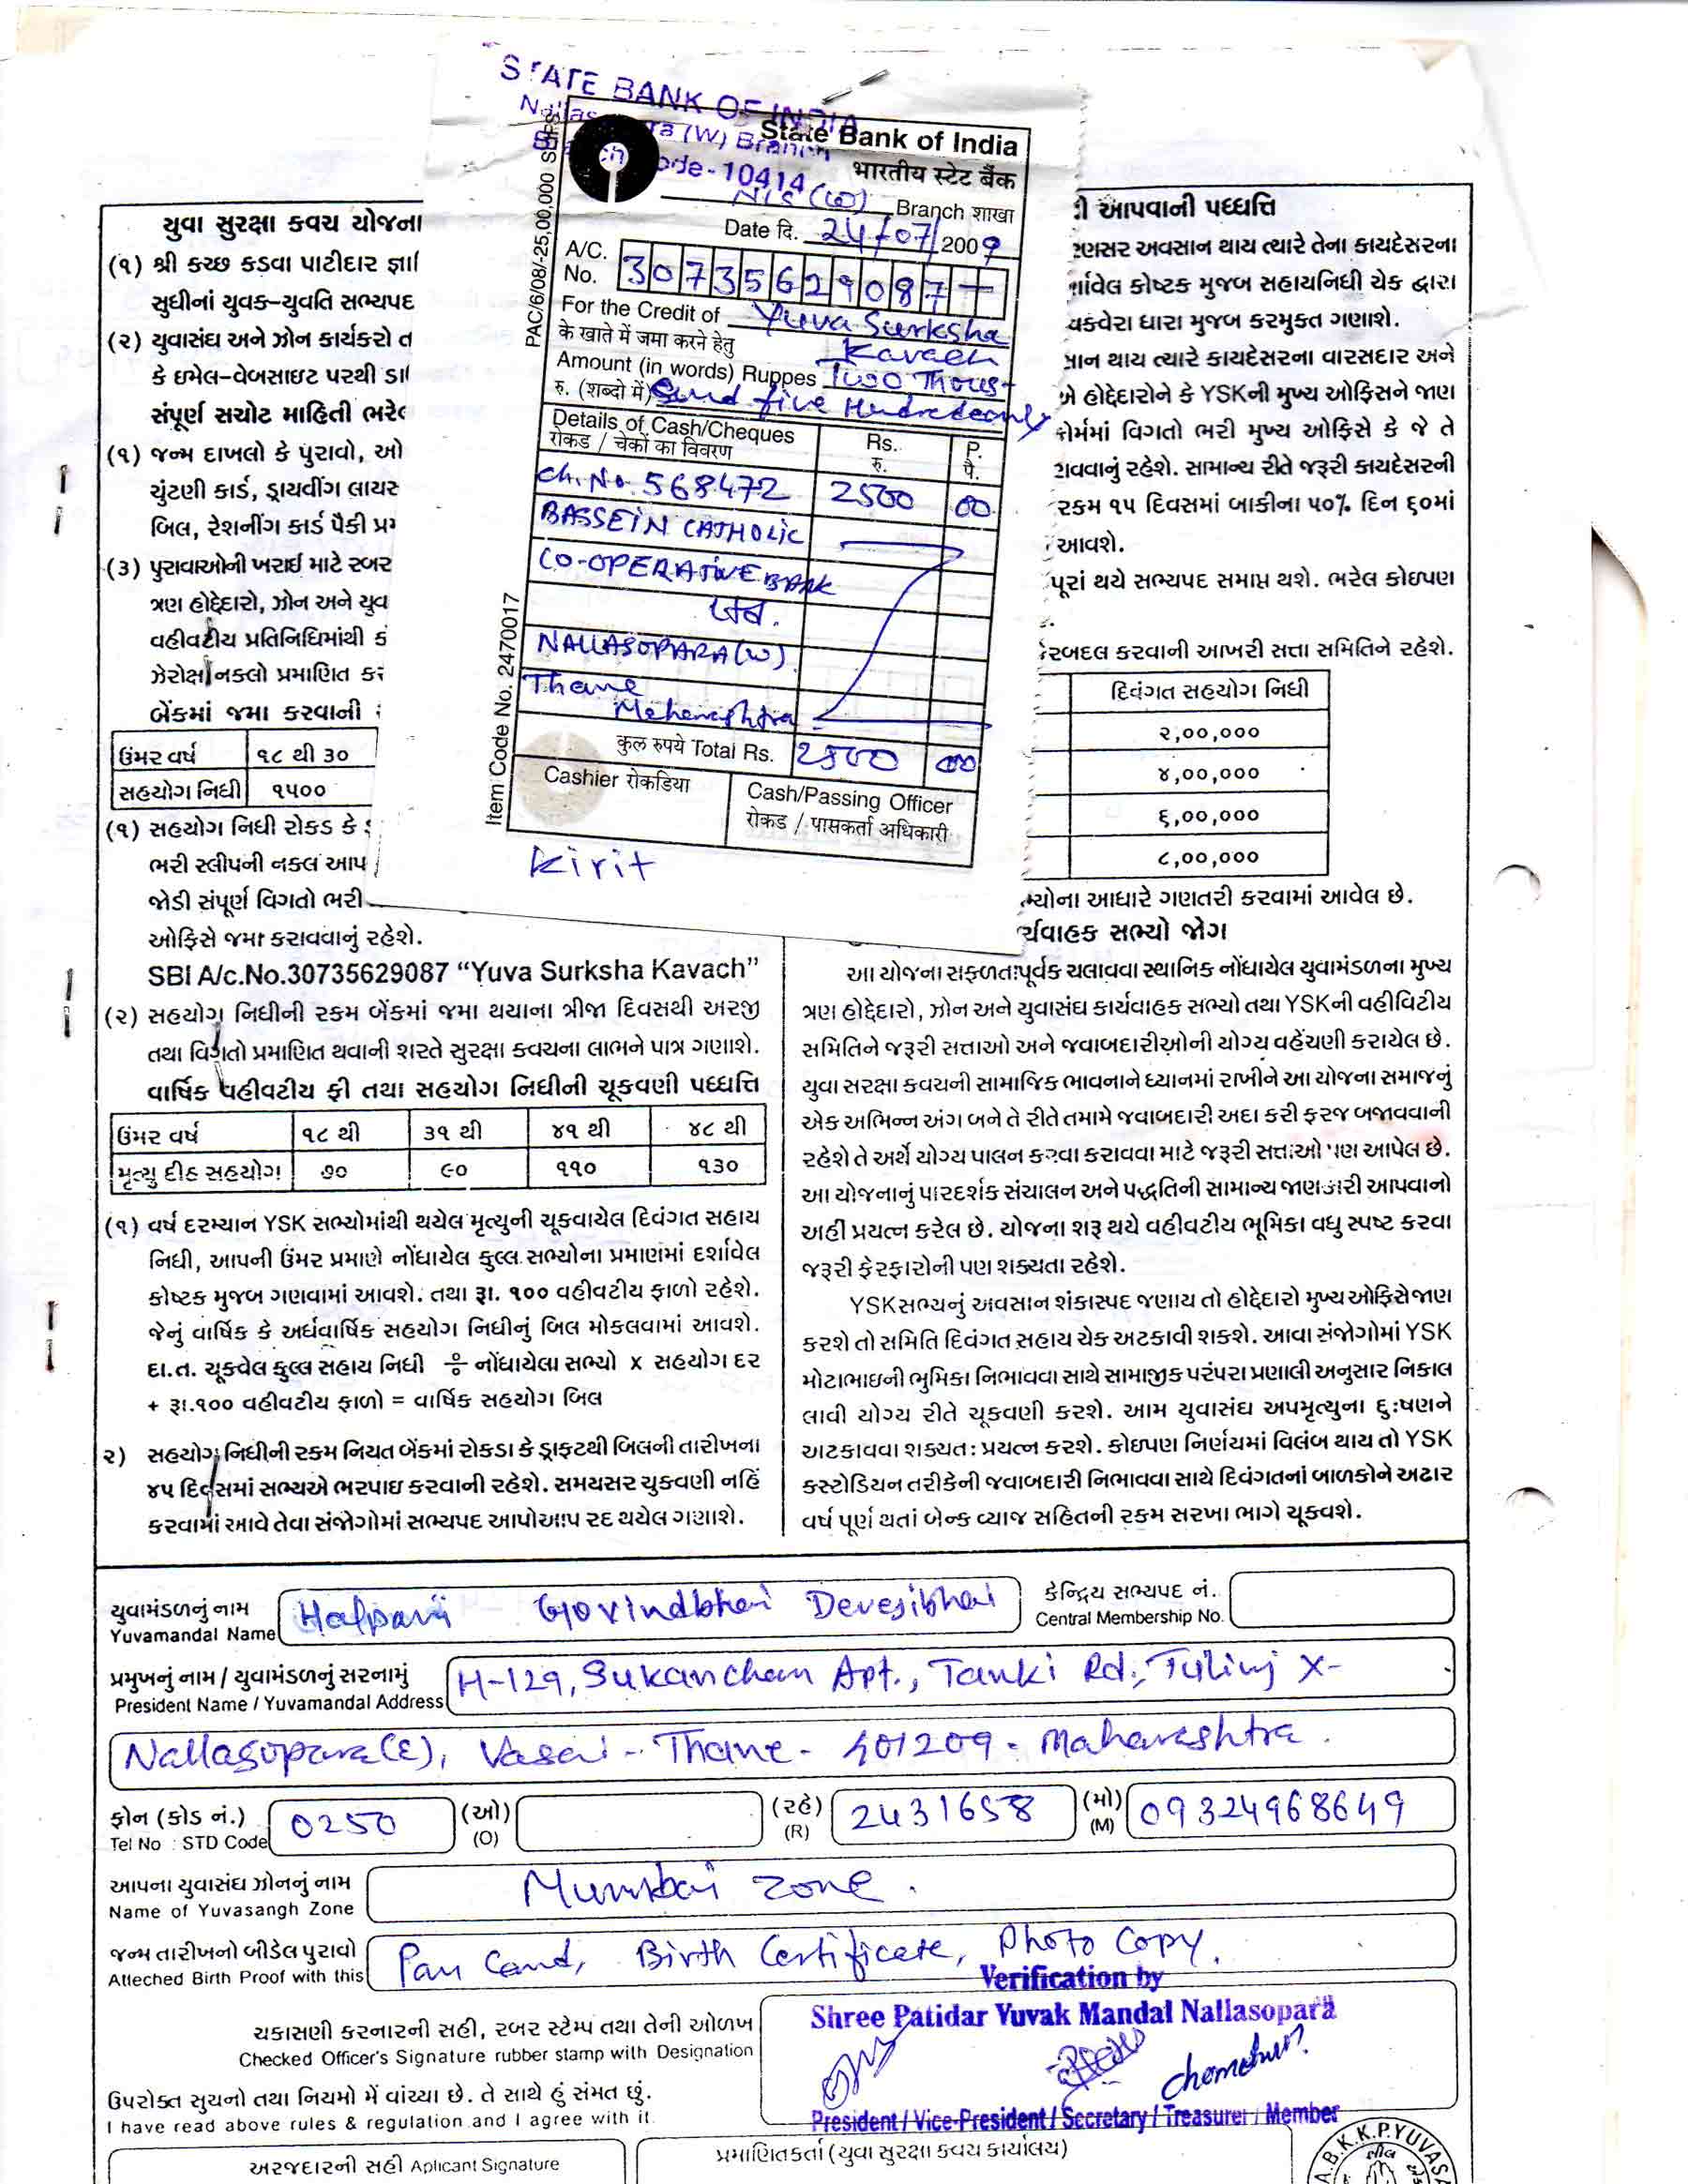 STATE BANK OF INDIA
(W) Branch
Code-10414
State Bank of India
भारतीय स्टेट बैंक
NLS (W) Branch शाखा
Date दि. 24/07/2009
A/C. No. 30735629087-
For the Credit of Yuva Surksha
के खाते में जमा करने हेतु Kavach
Amount (in words) Ruppes Two Thous-
रु. (शब्दो में) and five Hundred only
Details of Cash/Cheques Rs. P.
रोकड / चेकों का विवरण रु. पै.
Ch. No. 568472 2500 00
BASSEIN CATHOLIC
CO-OPERATIVE BANK
NALLASOPARA (W)
Thane
Maharashtra
कुल रुपये Total Rs. 2500 00
Cashier रोकडिया Cash/Passing Officer
रोकड / पासकर्ता अधिकारी
PAC/6/08/-25,00,000 Slips
Item Code No. 2470017
Kirit
યુવા સુરક્ષા કવચ યોજના
(૧) શ્રી કચ્છ કડવા પાટીદાર જ્ઞાતિ
સુધીનાં યુવક-યુવતિ સભ્યપદ
(૨) યુવાસંઘ અને ઝોન કાર્યકરો ત
કે ઇમેલ-વેબસાઇટ પરથી ડા
સંપૂર્ણ સચોટ માહિતી ભરેલ
(૧) જન્મ દાખલો કે પુરાવો, ઓ
ચુંટણી કાર્ડ, ડ્રાયવીંગ લાયસ
બિલ, રેશનીંગ કાર્ડ પૈકી પ્રમ
(૩) પુરાવાઓની ખરાઇ માટે રબર
ત્રણ હોદ્દેદારો, ઝોન અને યુવ
વહીવટીય પ્રતિનિધિમાંથી કં
ઝેરોક્ષ નકલો પ્રમાણિત કર
બેંકમાં જમા કરવાની
ઉંમર વર્ષ ૧૮ થી ૩૦
સહયોગ નિધી ૧૫૦૦
(૧) સહયોગ નિધી રોકડ કે
ભરી સ્લીપની નકલ આપ
જોડી સંપૂર્ણ વિગતો ભરી
ઓફિસે જમા કરાવવાનું રહેશે.
SBI A/c.No.30735629087 “Yuva Surksha Kavach”
(૨) સહયોગ નિધીની રકમ બેંકમાં જમા થયાના ત્રીજા દિવસથી અરજી
તથા વિગતો પ્રમાણિત થવાની શરતે સુરક્ષા કવચના લાભને પાત્ર ગણાશે.
વાર્ષિક વહીવટીય ફી તથા સહયોગ નિધીની ચૂકવણી પધ્ધતિ
ઉંમર વર્ષ ૧૮ થી ૩૧ થી ૪૧ થી ૪૮ થી
મૃત્યુ દીઠ સહયોગ ૭૦ ૯૦ ૧૧૦ ૧૩૦
(૧) વર્ષ દરમ્યાન YSK સભ્યોમાંથી થયેલ મૃત્યુની ચૂકવાયેલ દિવંગત સહાય
નિધી, આપની ઉંમર પ્રમાણે નોંધાયેલ કુલ્લ સભ્યોના પ્રમાણમાં દર્શાવેલ
કોષ્ટક મુજબ ગણવામાં આવશે. તથા રૂા. ૧૦૦ વહીવટીય ફાળો રહેશે.
જેનું વાર્ષિક કે અર્ધવાર્ષિક સહયોગ નિધીનું બિલ મોકલવામાં આવશે.
દા.ત. ચૂકવેલ કુલ્લ સહાય નિધી ÷ નોંધાયેલા સભ્યો x સહયોગ દર
+ રૂા.૧૦૦ વહીવટીય ફાળો = વાર્ષિક સહયોગ બિલ
૨) સહયોગ નિધીની રકમ નિયત બેંકમાં રોકડા કે ડ્રાફટથી બિલની તારીખના
૪૫ દિવસમાં સભ્યએ ભરપાઇ કરવાની રહેશે. સમયસર ચુકવણી નહિં
કરવામાં આવે તેવા સંજોગોમાં સભ્યપદ આપોઆપ રદ થયેલ ગણાશે.
ી આપવાની પધ્ધતિ
ણસર અવસાન થાય ત્યારે તેના કાયદેસરના
ર્શાવેલ કોષ્ટક મુજબ સહાયનિધી ચેક દ્વારા
વકવેરા ધારા મુજબ કરમુક્ત ગણાશે.
સાન થાય ત્યારે કાયદેસરના વારસદાર અને
એ હોદ્દેદારોને કે YSKની મુખ્ય ઓફિસને જાણ
ફોર્મમાં વિગતો ભરી મુખ્ય ઓફિસે કે જે તે
રાવવાનું રહેશે. સામાન્ય રીતે જરૂરી કાયદેસરની
રકમ ૧૫ દિવસમાં બાકીના ૫૦% દિન ૬૦માં
આવશે.
પૂરાં થયે સભ્યપદ સમાપ્ત થશે. ભરેલ કોઇપણ
ફેરબદલ કરવાની આખરી સત્તા સમિતિને રહેશે.
દિવંગત સહયોગ નિધી
૨,૦૦,૦૦૦
૪,૦૦,૦૦૦
૬,૦૦,૦૦૦
૮,૦૦,૦૦૦
ભ્યોના આધારે ગણતરી કરવામાં આવેલ છે.
ર્યવાહક સભ્યો જોગ
આ યોજના સફળતાપૂર્વક ચલાવવા સ્થાનિક નોંધાયેલ યુવામંડળના મુખ્ય
ત્રણ હોદ્દેદારો, ઝોન અને યુવાસંઘ કાર્યવાહક સભ્યો તથા YSKની વહીવિટીય
સમિતિને જરૂરી સત્તાઓ અને જવાબદારીઓની યોગ્ય વહેંચણી કરાયેલ છે.
યુવા સરક્ષા કવચની સામાજિક ભાવનાને ધ્યાનમાં રાખીને આ યોજના સમાજનું
એક અભિન્ન અંગ બને તે રીતે તમામે જવાબદારી અદા કરી ફરજ બજાવવાની
રહેશે તે અર્થે યોગ્ય પાલન કરવા કરાવવા માટે જરૂરી સત્તાઓ પણ આપેલ છે.
આ યોજનાનું પારદર્શક સંચાલન અને પદ્ધતિની સામાન્ય જાણકારી આપવાનો
અહીં પ્રયત્ન કરેલ છે. યોજના શરૂ થયે વહીવટીય ભૂમિકા વધુ સ્પષ્ટ કરવા
જરૂરી ફેરફારોની પણ શક્યતા રહેશે.
YSKસભ્યનું અવસાન શંકાસ્પદ જણાય તો હોદ્દેદારો મુખ્ય ઓફિસે જાણ
કરશે તો સમિતિ દિવંગત સહાય ચેક અટકાવી શકશે. આવા સંજોગોમાં YSK
મોટાભાઇની ભુમિકા નિભાવવા સાથે સામાજીક પરંપરા પ્રણાલી અનુસાર નિકાલ
લાવી યોગ્ય રીતે ચૂકવણી કરશે. આમ યુવાસંઘ અપમૃત્યુના દુઃષણને
અટકાવવા શક્યતઃ પ્રયત્ન કરશે. કોઇપણ નિર્ણયમાં વિલંબ થાય તો YSK
કસ્ટોડિયન તરીકેની જવાબદારી નિભાવવા સાથે દિવંગતનાં બાળકોને અઢાર
વર્ષ પૂર્ણ થતાં બેન્ક વ્યાજ સહિતની રકમ સરખા ભાગે ચૂકવશે.
યુવામંડળનું નામ Halpani Govindbhai Devsjibhai કેન્દ્રિય સભ્યપદ નં.
Yuvamandal Name Central Membership No.
પ્રમુખનું નામ / યુવામંડળનું સરનામું H-129, Sukanchan Apt., Tanki Rd., Tulinj X-
President Name / Yuvamandal Address
Nallasopara (E), Vasai - Thane - 401209 - Maharashtra.
ફોન (કોડ નં.) 0250 (ઓ) (રહે) 2431658 (મો) 09324968649
Tel No : STD Code (O) (R) (M)
આપના યુવાસંઘ ઝોનનું નામ Mumbai Zone.
Name of Yuvasangh Zone
જન્મ તારીખનો બીડેલ પુરાવો Pan Card, Birth Certificate, Photo Copy.
Atteched Birth Proof with this
Verification by
Shree Patidar Yuvak Mandal Nallasopara
ચકાસણી કરનારની સહી, રબર સ્ટેમ્પ તથા તેની ઓળખ
Checked Officer's Signature rubber stamp with Designation
ઉપરોક્ત સુચનો તથા નિયમો મેં વાંચ્યા છે. તે સાથે હું સંમત છું.
I have read above rules & regulation and I agree with it.
President / Vice-President / Secretary / Treasurer / Member
અરજદારની સહી Aplicant Signature
પ્રમાણિતકર્તા (યુવા સુરક્ષા કવચ કાર્યાલય)
A.B.K.K.P.YUVASA